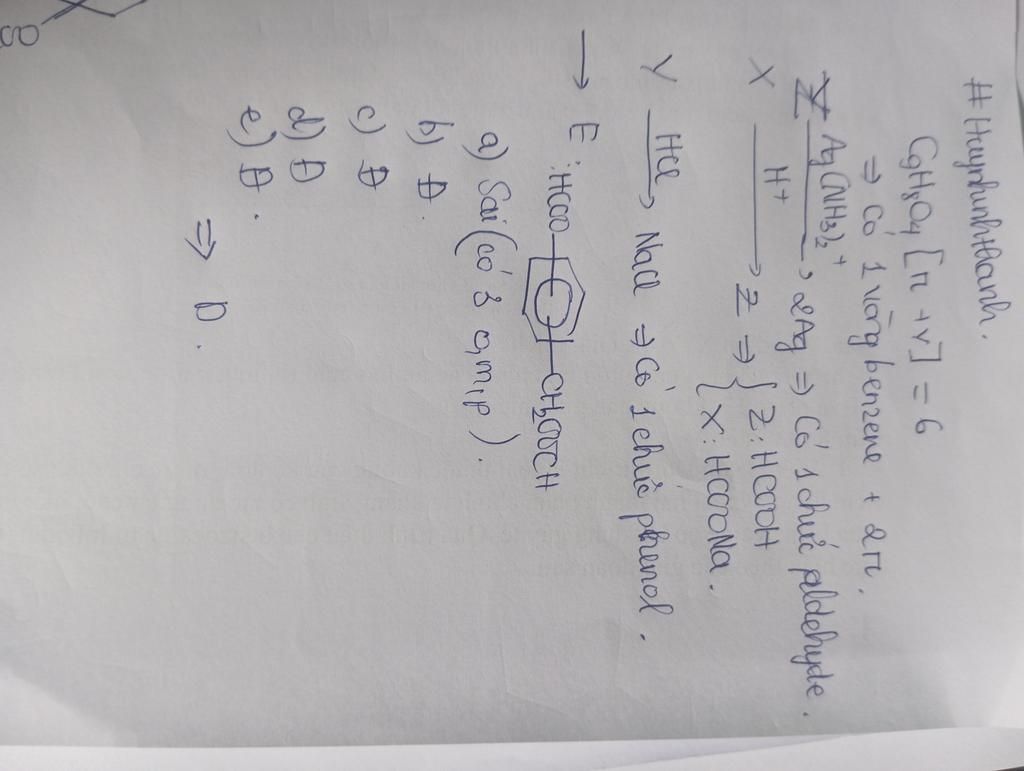 #Huynhinhthanh.
C9H8O4 [π + v] = 6
⇒ Có 1 vòng benzene + 2π.
Z Ag(NH3)2+ → 2Ag ⇒ Có 1 chức aldehyde.
X H+ → Z ⇒ { Z : HCOOH
X : HCOONa.
Y HCl → NaCl ⇒ Có 1 chức phenol.
→ E : HCOO CH2OOCH
a) Sai (có 3 o,m,p).
b) Đ.
c) Đ
d) Đ
e) Đ.
⇒ D.